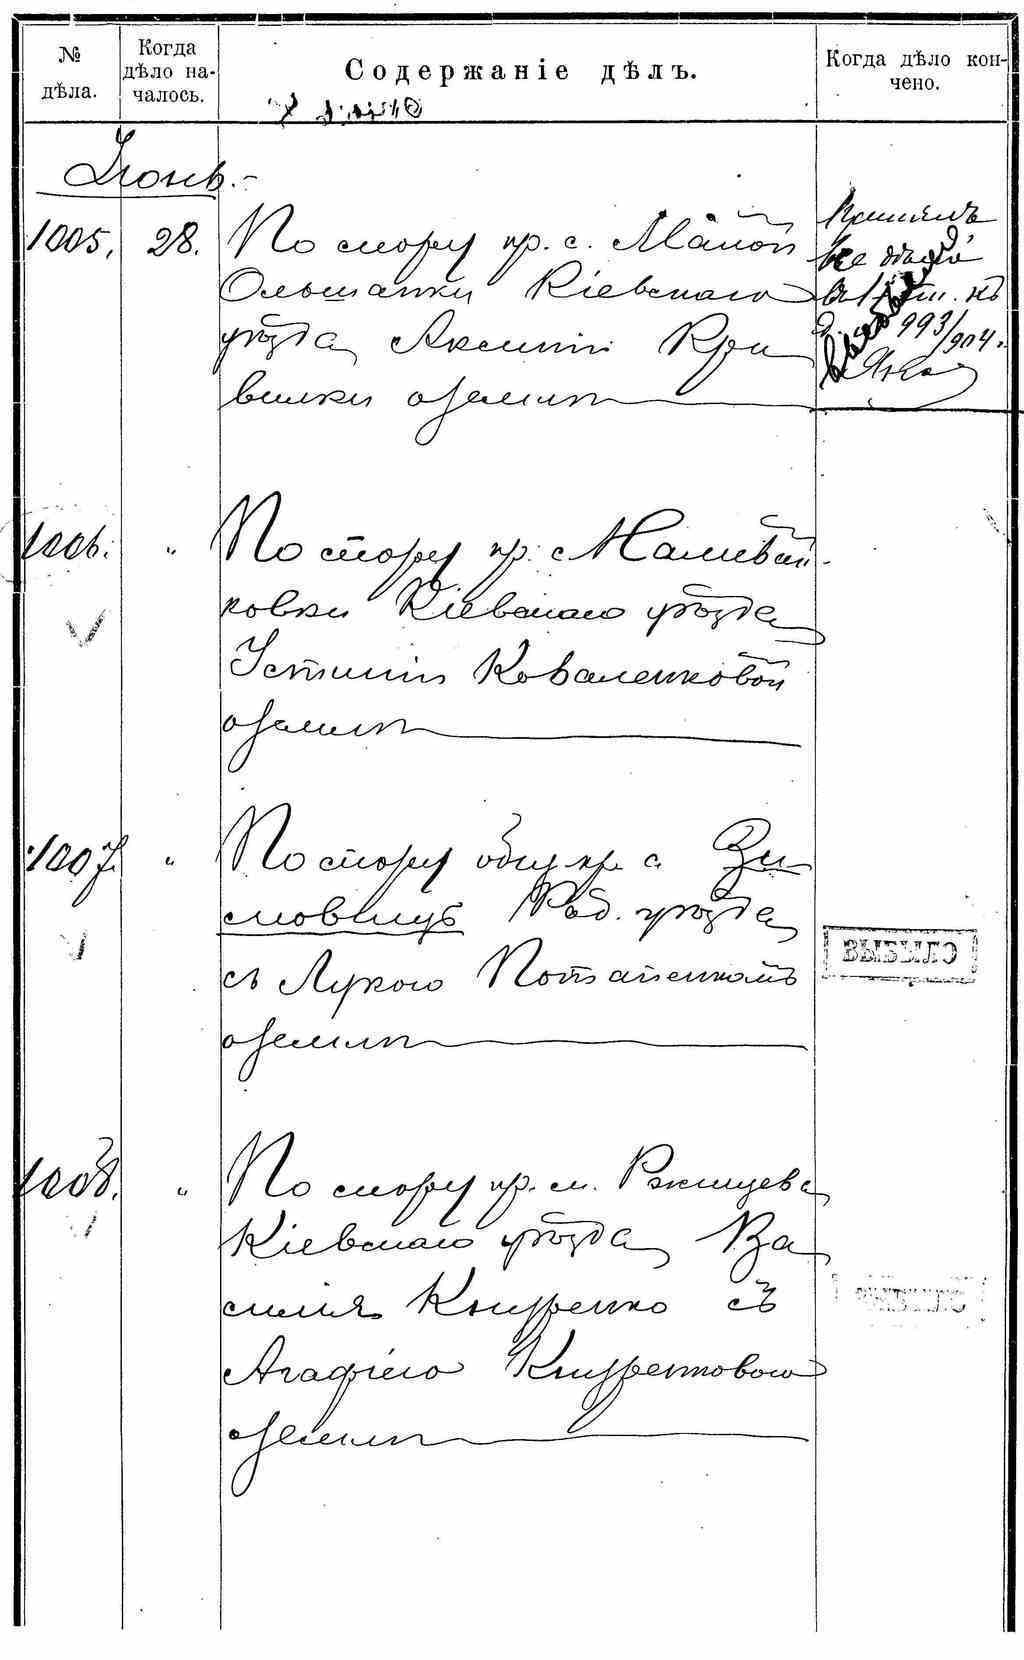 № дѣла.
Когда дѣло началось.
Содержаніе дѣлъ.
Когда дѣло кончено.
Іюнь.
1005. 28. По спору кр. с. Малой
Ольшанки Кіевскаго
уѣзда Аксиніи Кри
вилки о землѣ
къ
993/904.
1006. " По спору кр. с. Малиебай-
ковки Кіевскаго уѣзда
Устиніи Коваленковой
о землѣ
1007. " По спору общ. кр. с. Зи
мовищъ Рад. уѣзда
съ Лукою Потапенкомъ
о землѣ
ВЫБЫЛО
1008. " По спору кр. м. Ржищева
Кіевскаго уѣзда Ва
силія Кнуренко съ
Агафіею Кнуренковою
о землѣ
ВЫБЫЛО